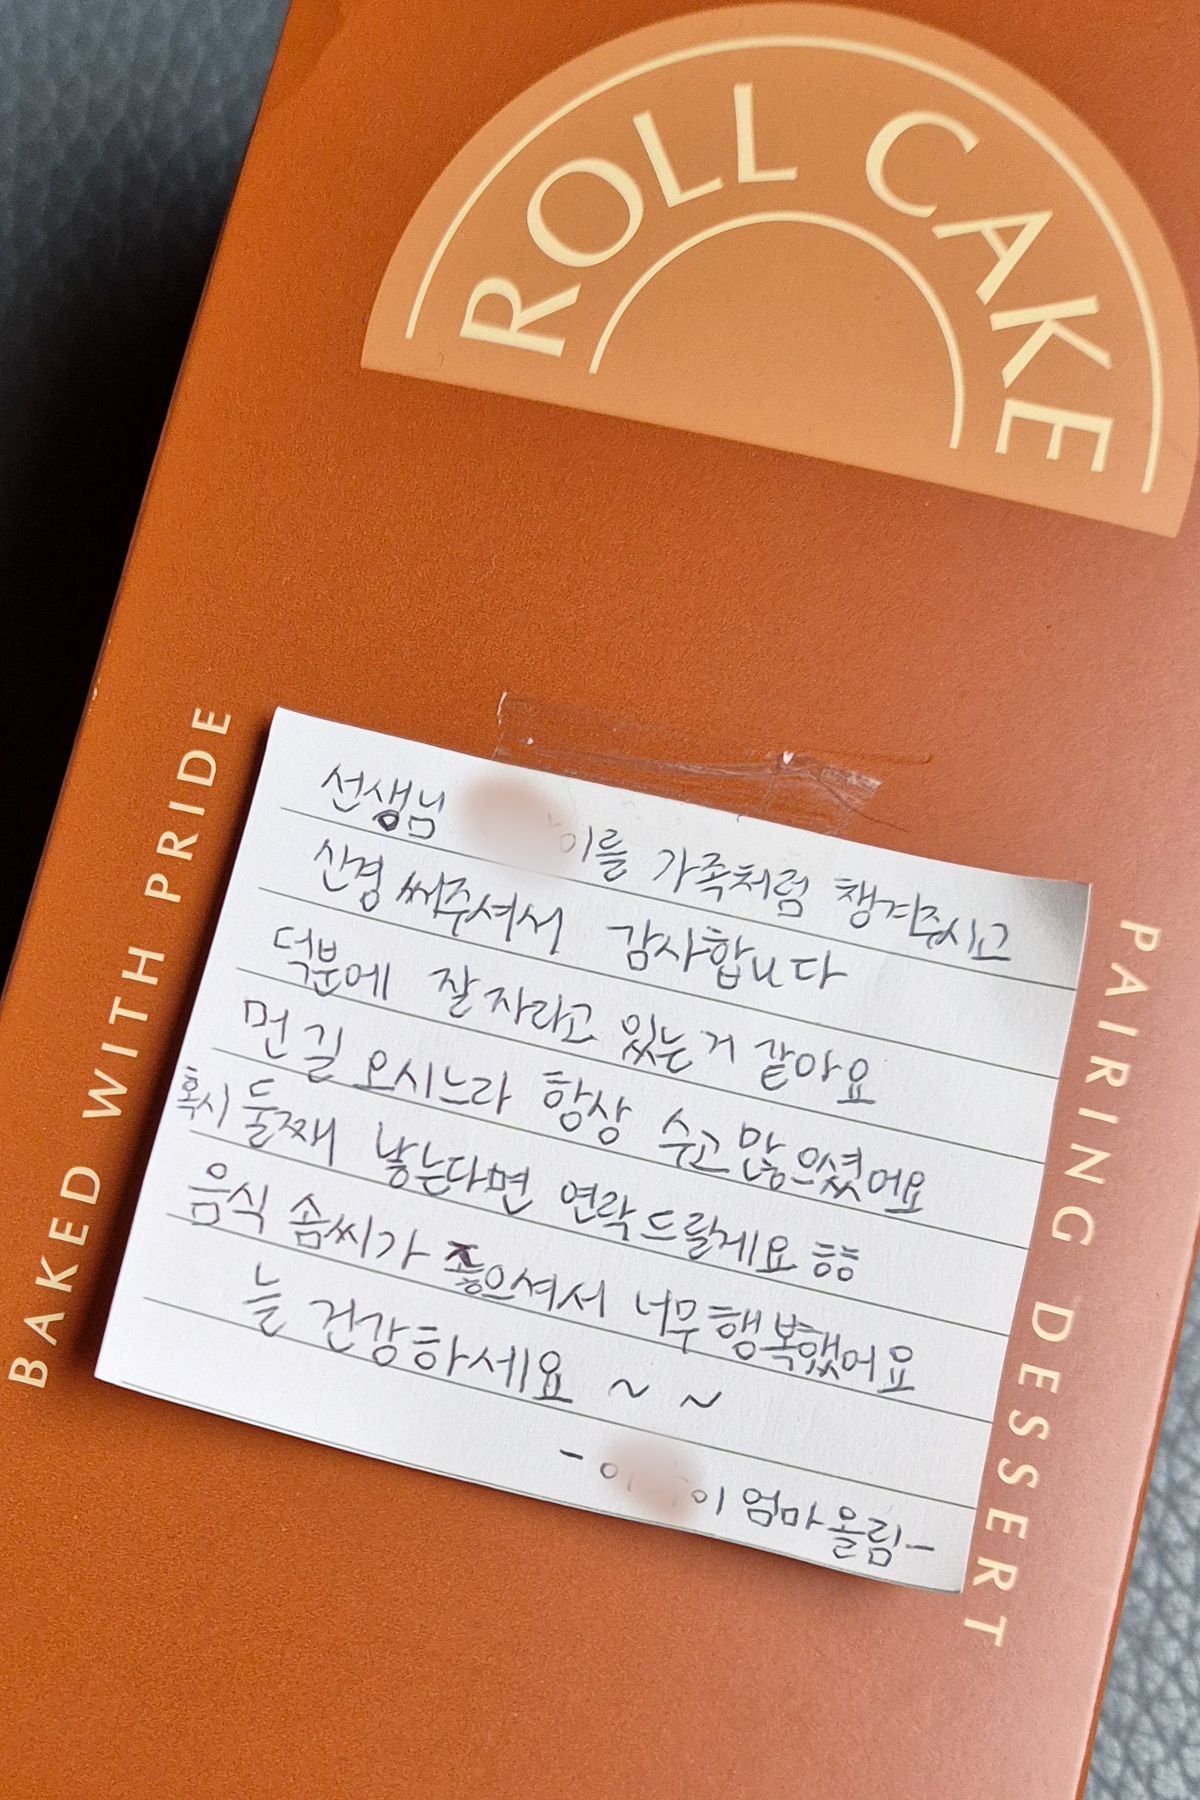 ROLL CAKE
BAKED WITH PRIDE
PAIRING DESSERT
선생님 이를 가족처럼 챙겨주시고
신경 써주셔서 감사합니다
덕분에 잘 자라고 있는거 같아요
먼 길 오시느라 항상 수고많으셨어요
혹시 둘째 낳는다면 연락드릴게요 ㅎㅎ
음식 솜씨가 좋으셔서 너무행복했어요
늘 건강하세요 ~ ~
- 이 이 엄마올림-